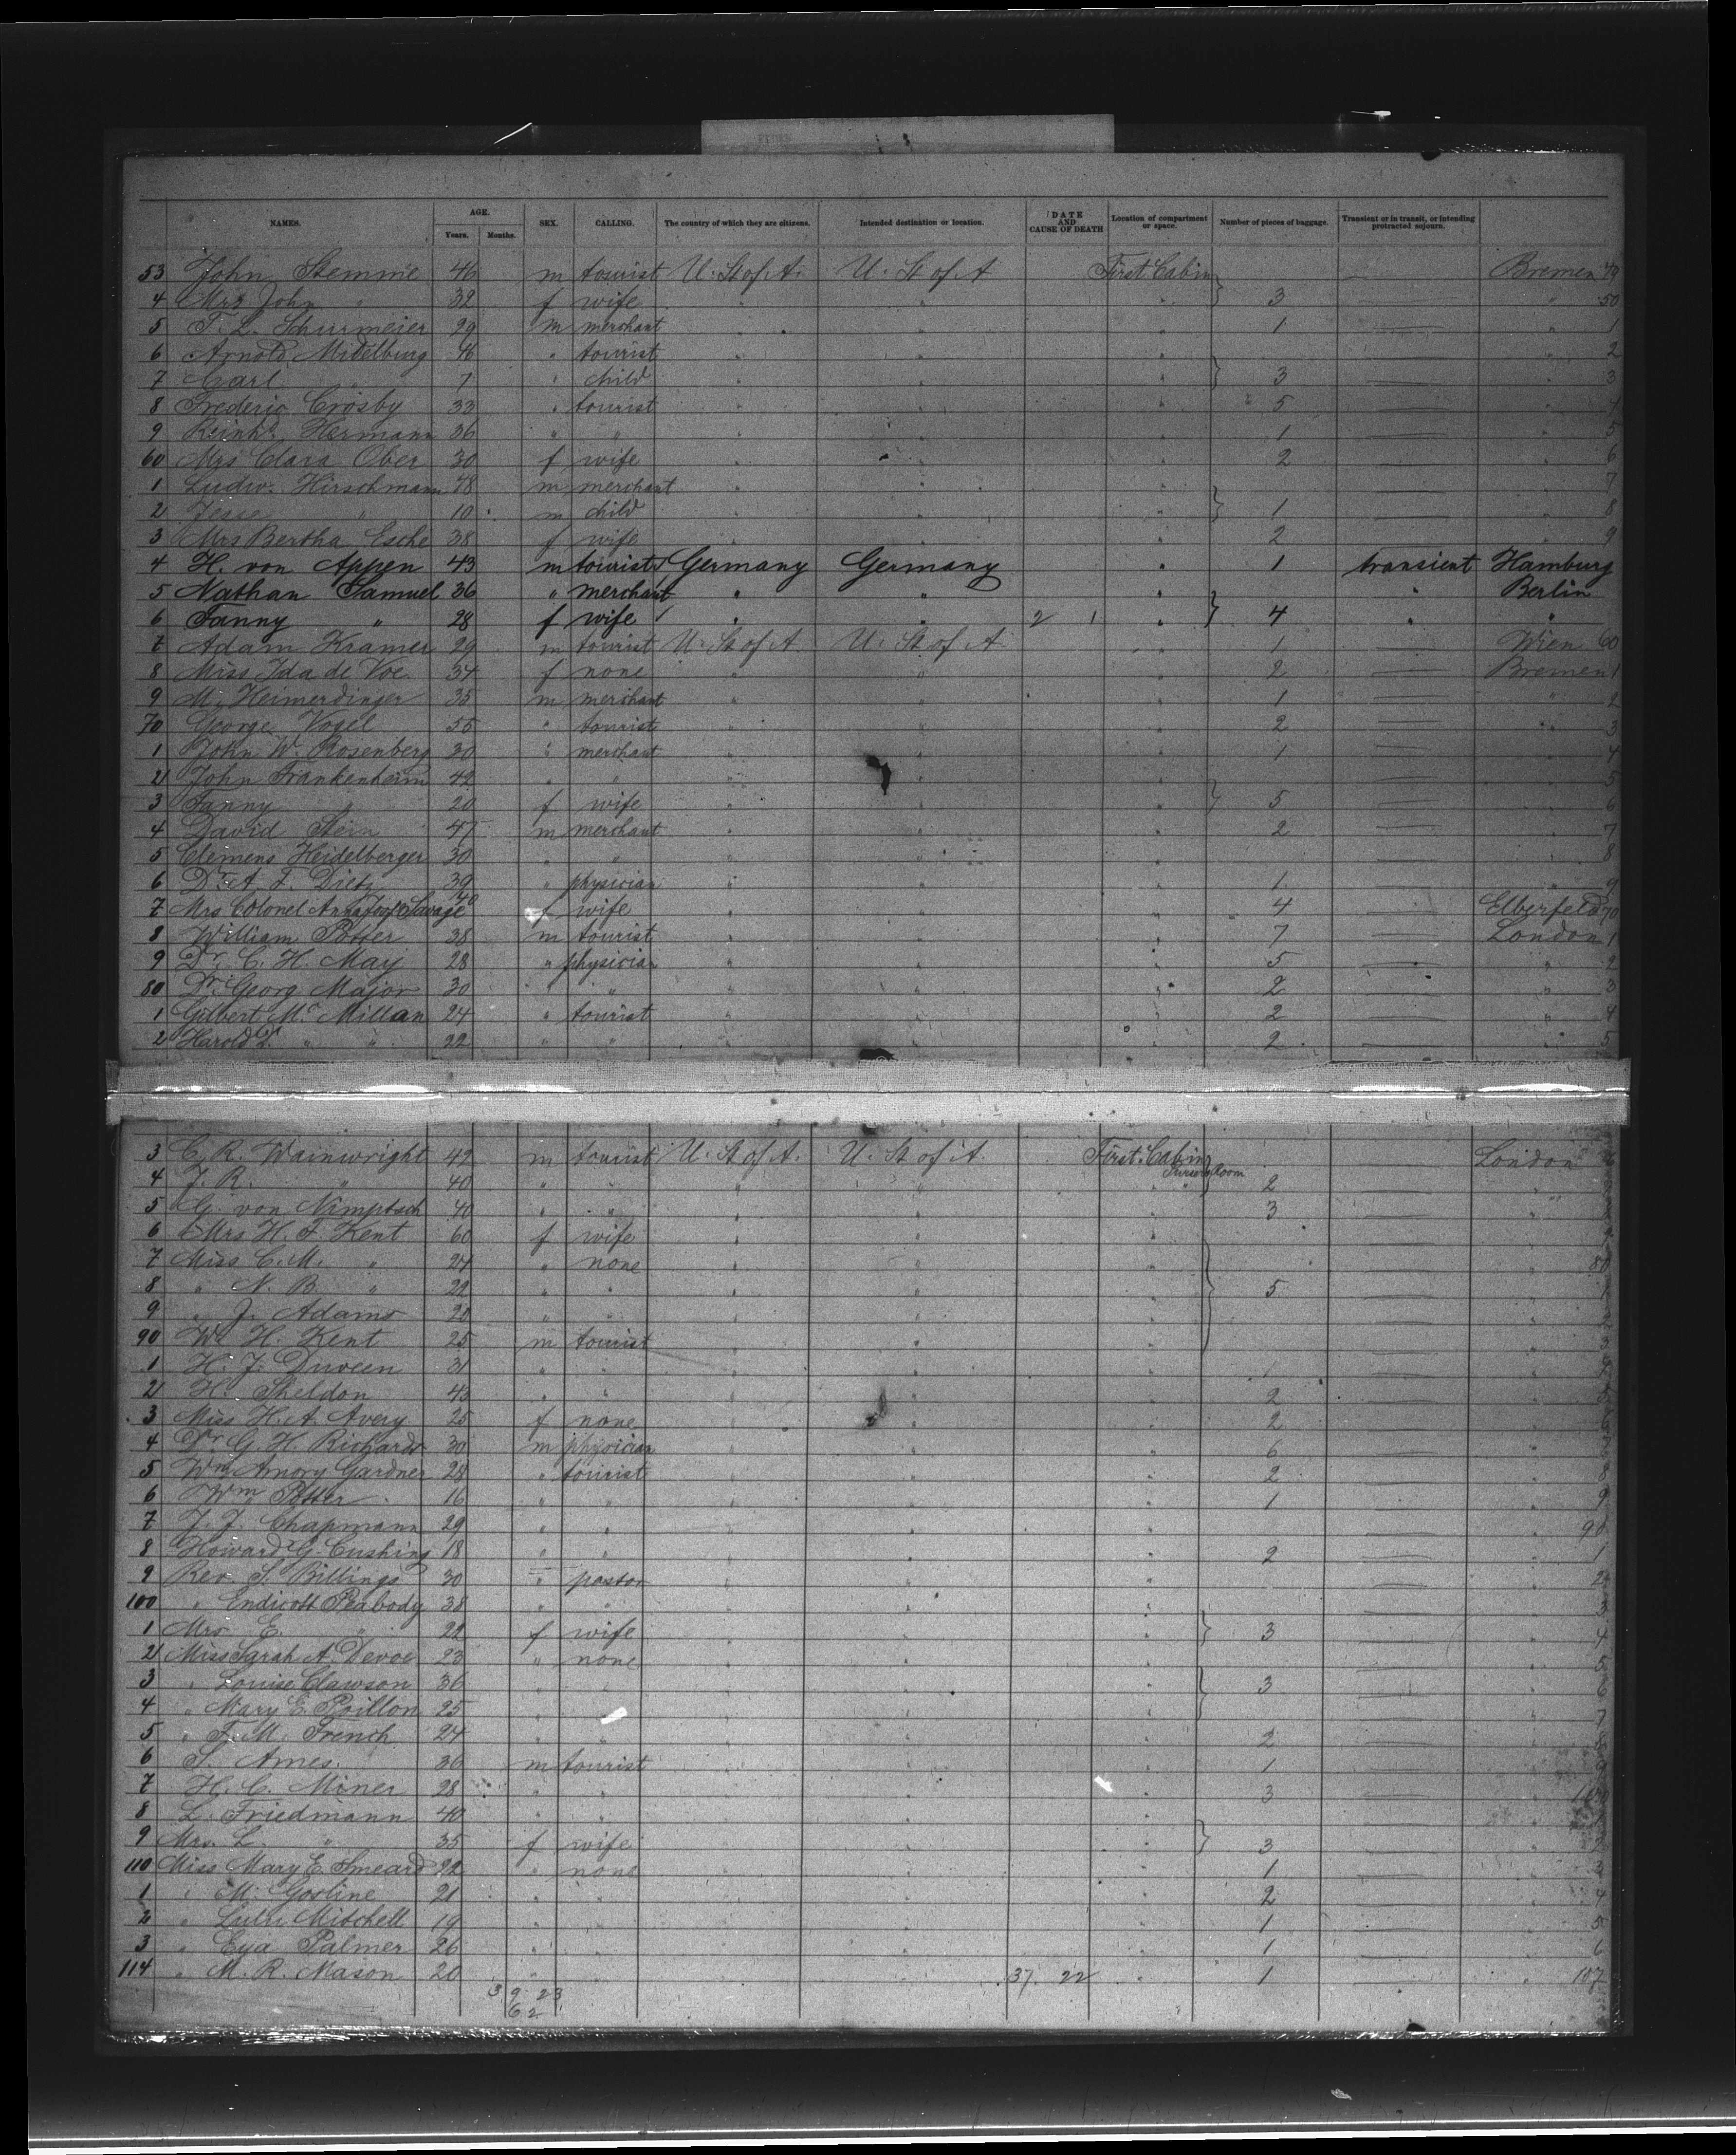 NAMES. AGE. Years. Months. SEX. CALLING. The country of which they are citizens. Intended destination or location. DATE AND CAUSE OF DEATH Location of compartment or space. Number of pieces of baggage. Transient or in transit, or intending protracted sojourn.
53 John Stemme 46 m tourist U. St of A. U. St of A First Cabin Bremen 49
4 Mrs John " 32 f wife " " " 3 " 50
5 F. L. Schurmeier 29 m merchant " " " 1 " 1
6 Arnold Midelburg 46 " tourist " " " " 2
7 Carl " 7 " child " " " 3 " 3
8 Frederic Crosby 33 " tourist " " " 5 " 4
9 Reinhd. Hermann 36 " " " " " 1 " 5
60 Mrs Clara Ober 30 f wife " " " 2 " 6
1 Ludw. Hirschmann 48 m merchant " " " " 7
2 Jesse " 10 m child " " " 1 " 8
3 Mrs Bertha Esche 38 f wife " " " 2 " 9
4 H. von Appen 43 m tourist Germany Germany " 1 transient Hamburg
5 Nathan Samuel 36 " merchant " " " " Berlin
6 Fanny " 28 f wife " " 2 1 " 4 " "
7 Adam Kramer 29 m tourist U. St of A U. St of A " 1 Wien 60
8 Miss Ida de Voe 34 f none " " " 2 Bremen 1
9 M. Heimerdinger 35 m merchant " " " 1 " 2
70 George Vogel 55 " tourist " " " 2 " 3
1 John W. Rosenberg 30 " merchant " " " 1 " 4
2 John Frankenheim 42 " " " " " " 5
3 Fanny " 20 f wife " " " 5 " 6
4 David Stein 47 m merchant " " " 2 " 7
5 Clemens Heidelberger 30 " " " " " " 8
6 Dr. A. F. Dietz 39 " physician " " " 1 " 9
7 Mrs Colonel Savage 40 f wife " " " 4 Elberfeld 70
8 William Potter 38 m tourist " " " 7 London 1
9 Dr. C. H. May 28 " physician " " " 5 " 2
80 Dr. Georg Major 30 " " " " " 2 " 3
1 Gilbert Mc Millan 24 " tourist " " " 2 " 4
2 Harold " " 22 " " " " " 2 " 5
3 C. R. Wainwright 42 m tourist U. St of A. U. St of A. First Cabin London
4 J. R. " 40 " " " " " 2 "
5 G. von Nimptsch 40 " " " " " 3 "
6 Mrs H. F. Kent 60 f wife " " " "
7 Miss C. M. " 24 " none " " " " 80
8 " N. B. " 22 " " " " " 5 " 1
9 " J. Adams 20 " " " " " " 2
90 Wm H. Kent 25 m tourist " " " " 3
1 H. J. Duveen 31 " " " " " 1 "
2 H. Sheldon 43 " " " " " 2 "
3 Miss H. A. Avery 25 f none " " " 2 " 6
4 Dr G. H. Richards 30 m physician " " " 6 "
5 Wm Amory Gardner 28 " tourist " " " 2 " 8
6 Wm Potter 16 " " " " " 1 " 9
7 J. J. Chapmann 29 " " " " " " 90
8 Howard G. Cushing 18 " " " " " 2 " 1
9 Rev S. Billings 30 " pastor " " " " 2
100 " Endicott Peabody 38 " " " " " " 3
1 Mrs E. " 22 f wife " " " 3 " 4
2 Miss Sarah A. Devoe 23 " none " " " " 5
3 " Louise Clawson 36 " " " " " 3 " 6
4 " Mary E. Poillon 25 " " " " " " 7
5 " F. M. French 24 " " " " " 2 " 8
6 S. Ames 36 m tourist " " " 1 " 9
7 H. C. Miner 28 " " " " " 3 " 100
8 L. Friedmann 40 " " " " "
9 Mrs. L. " 35 f wife " " " 3 " 2
110 Miss Mary E. Smeard 22 " none " " " 1 " 3
1 " M. Gosline 21 " " " " " 2 " 4
2 " Lulu Mitchell 19 " " " " " 1 " 5
3 " Eya Palmer 26 " " " " " 1 " 6
114 " M. R. Mason 20 " " " " 37 22 " 1 " 107
39 23
62